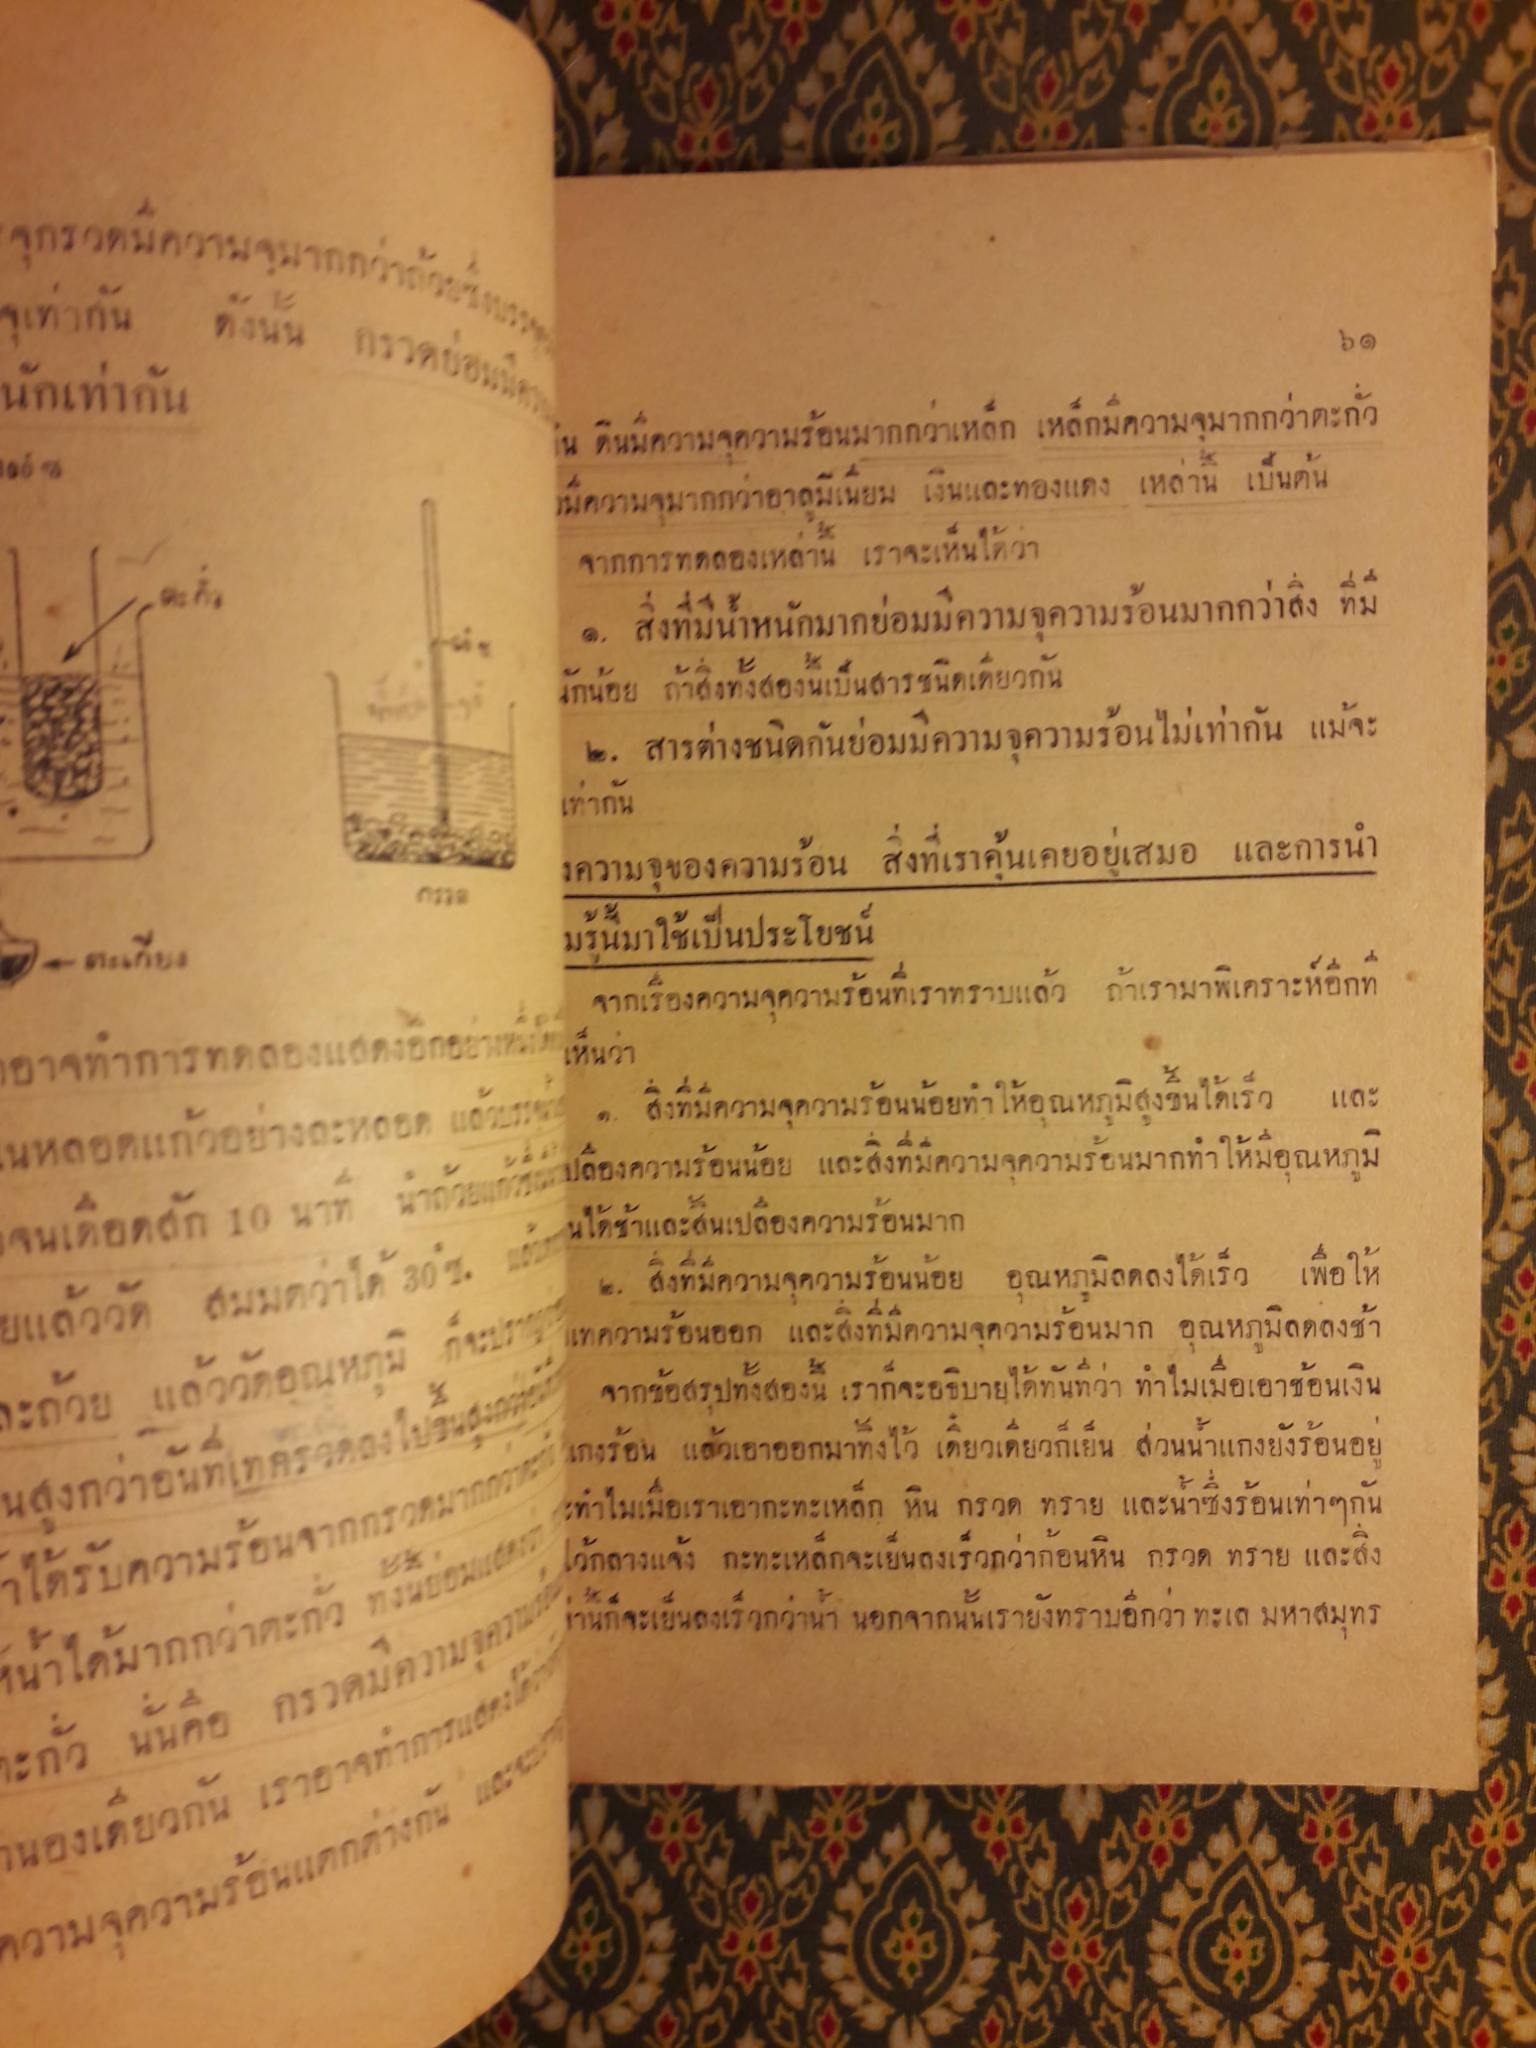 จุกรวดมีความจุมากกว่าถ้วยซึ่งบรรจุ
จุเท่ากัน ดังนั้น กรวดย่อมมีความ
นักเท่ากัน
ตะกั่ว
กรวด
ตะเกียง
อาจทำการทดลองแสดงอีกอย่างหนึ่งได้
นหลอดแก้วอย่างละหลอด แล้วบรรจุน้ำ
จนเดือดสัก 10 นาที นำถ้วยแก้วซึ่ง
ยแล้ววัด สมมตว่าได้ 30°ซ. แล้วเท
ละถ้วย แล้ววัดอุณหภูมิ ก็จะปรากฏ
นสูงกว่าอันที่เทกรวดลงไปขึ้นสูงกว่าอันที่
าได้รับความร้อนจากกรวดมากกว่าตะกั่ว
ห้น้ำได้มากกว่าตะกั่ว ทั้งนี้ย่อมแสดงว่า
ตะกั่ว นั่นคือ กรวดมีความจุความร้อน
านองเดียวกัน เราอาจทำการแสดงได้ว่า
ความจุความร้อนแตกต่างกัน และจะปราก
๖๑
ดินมีความจุความร้อนมากกว่าเหล็ก เหล็กมีความจุมากกว่าตะกั่ว
มีความจุมากกว่าอาลูมิเนี่ยม เงินและทองแดง เหล่านี้ เป็นต้น
จากการทดลองเหล่านี้ เราจะเห็นได้ว่า
๑. สิ่งที่มีน้ำหนักมากย่อมมีความจุความร้อนมากกว่าสิ่ง ที่มี
นักน้อย ถ้าสิ่งทั้งสองนี้เป็นสารชนิดเดียวกัน
๒. สารต่างชนิดกันย่อมมีความจุความร้อนไม่เท่ากัน แม้จะ
เท่ากัน
งความจุของความร้อน สิ่งที่เราคุ้นเคยอยู่เสมอ และการนำ
มรู้นี้มาใช้เป็นประโยชน์
จากเรื่องความจุความร้อนที่เราทราบแล้ว ถ้าเรามาพิเคราะห์อีกที
เห็นว่า
๑. สิ่งที่มีความจุความร้อนน้อยทำให้อุณหภูมิสูงขึ้นได้เร็ว และ
เปลืองความร้อนน้อย และสิ่งที่มีความจุความร้อนมากทำให้มีอุณหภูมิ
นได้ช้าและสิ้นเปลืองความร้อนมาก
๒. สิ่งที่มีความจุความร้อนน้อย อุณหภูมิลดลงได้เร็ว เพื่อให้
แทความร้อนออก และสิ่งที่มีความจุความร้อนมาก อุณหภูมิลดลงช้า
จากข้อสรุปทั้งสองนี้ เราก็จะอธิบายได้ทันที่ว่า ทำไมเมื่อเอาช้อนเงิน
แกงร้อน แล้วเอาออกมาทิ้งไว้ เดี๋ยวเดียวก็เย็น ส่วนน้ำแกงยังร้อนอยู่
ะทำไมเมื่อเราเอากะทะเหล็ก หิน กรวด ทราย และน้ำซึ่งร้อนเท่าๆกัน
ไว้กลางแจ้ง กะทะเหล็กจะเย็นลงเร็วกว่าก้อนหิน กรวด ทราย และสิ่ง
านี้ก็จะเย็นลงเร็วกว่าน้ำ นอกจากนั้นเรายังทราบอีกว่า ทะเล มหาสมุทร